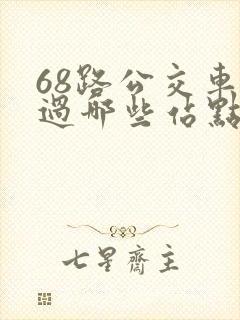 68路公交車
過哪些佔點
七星齋主